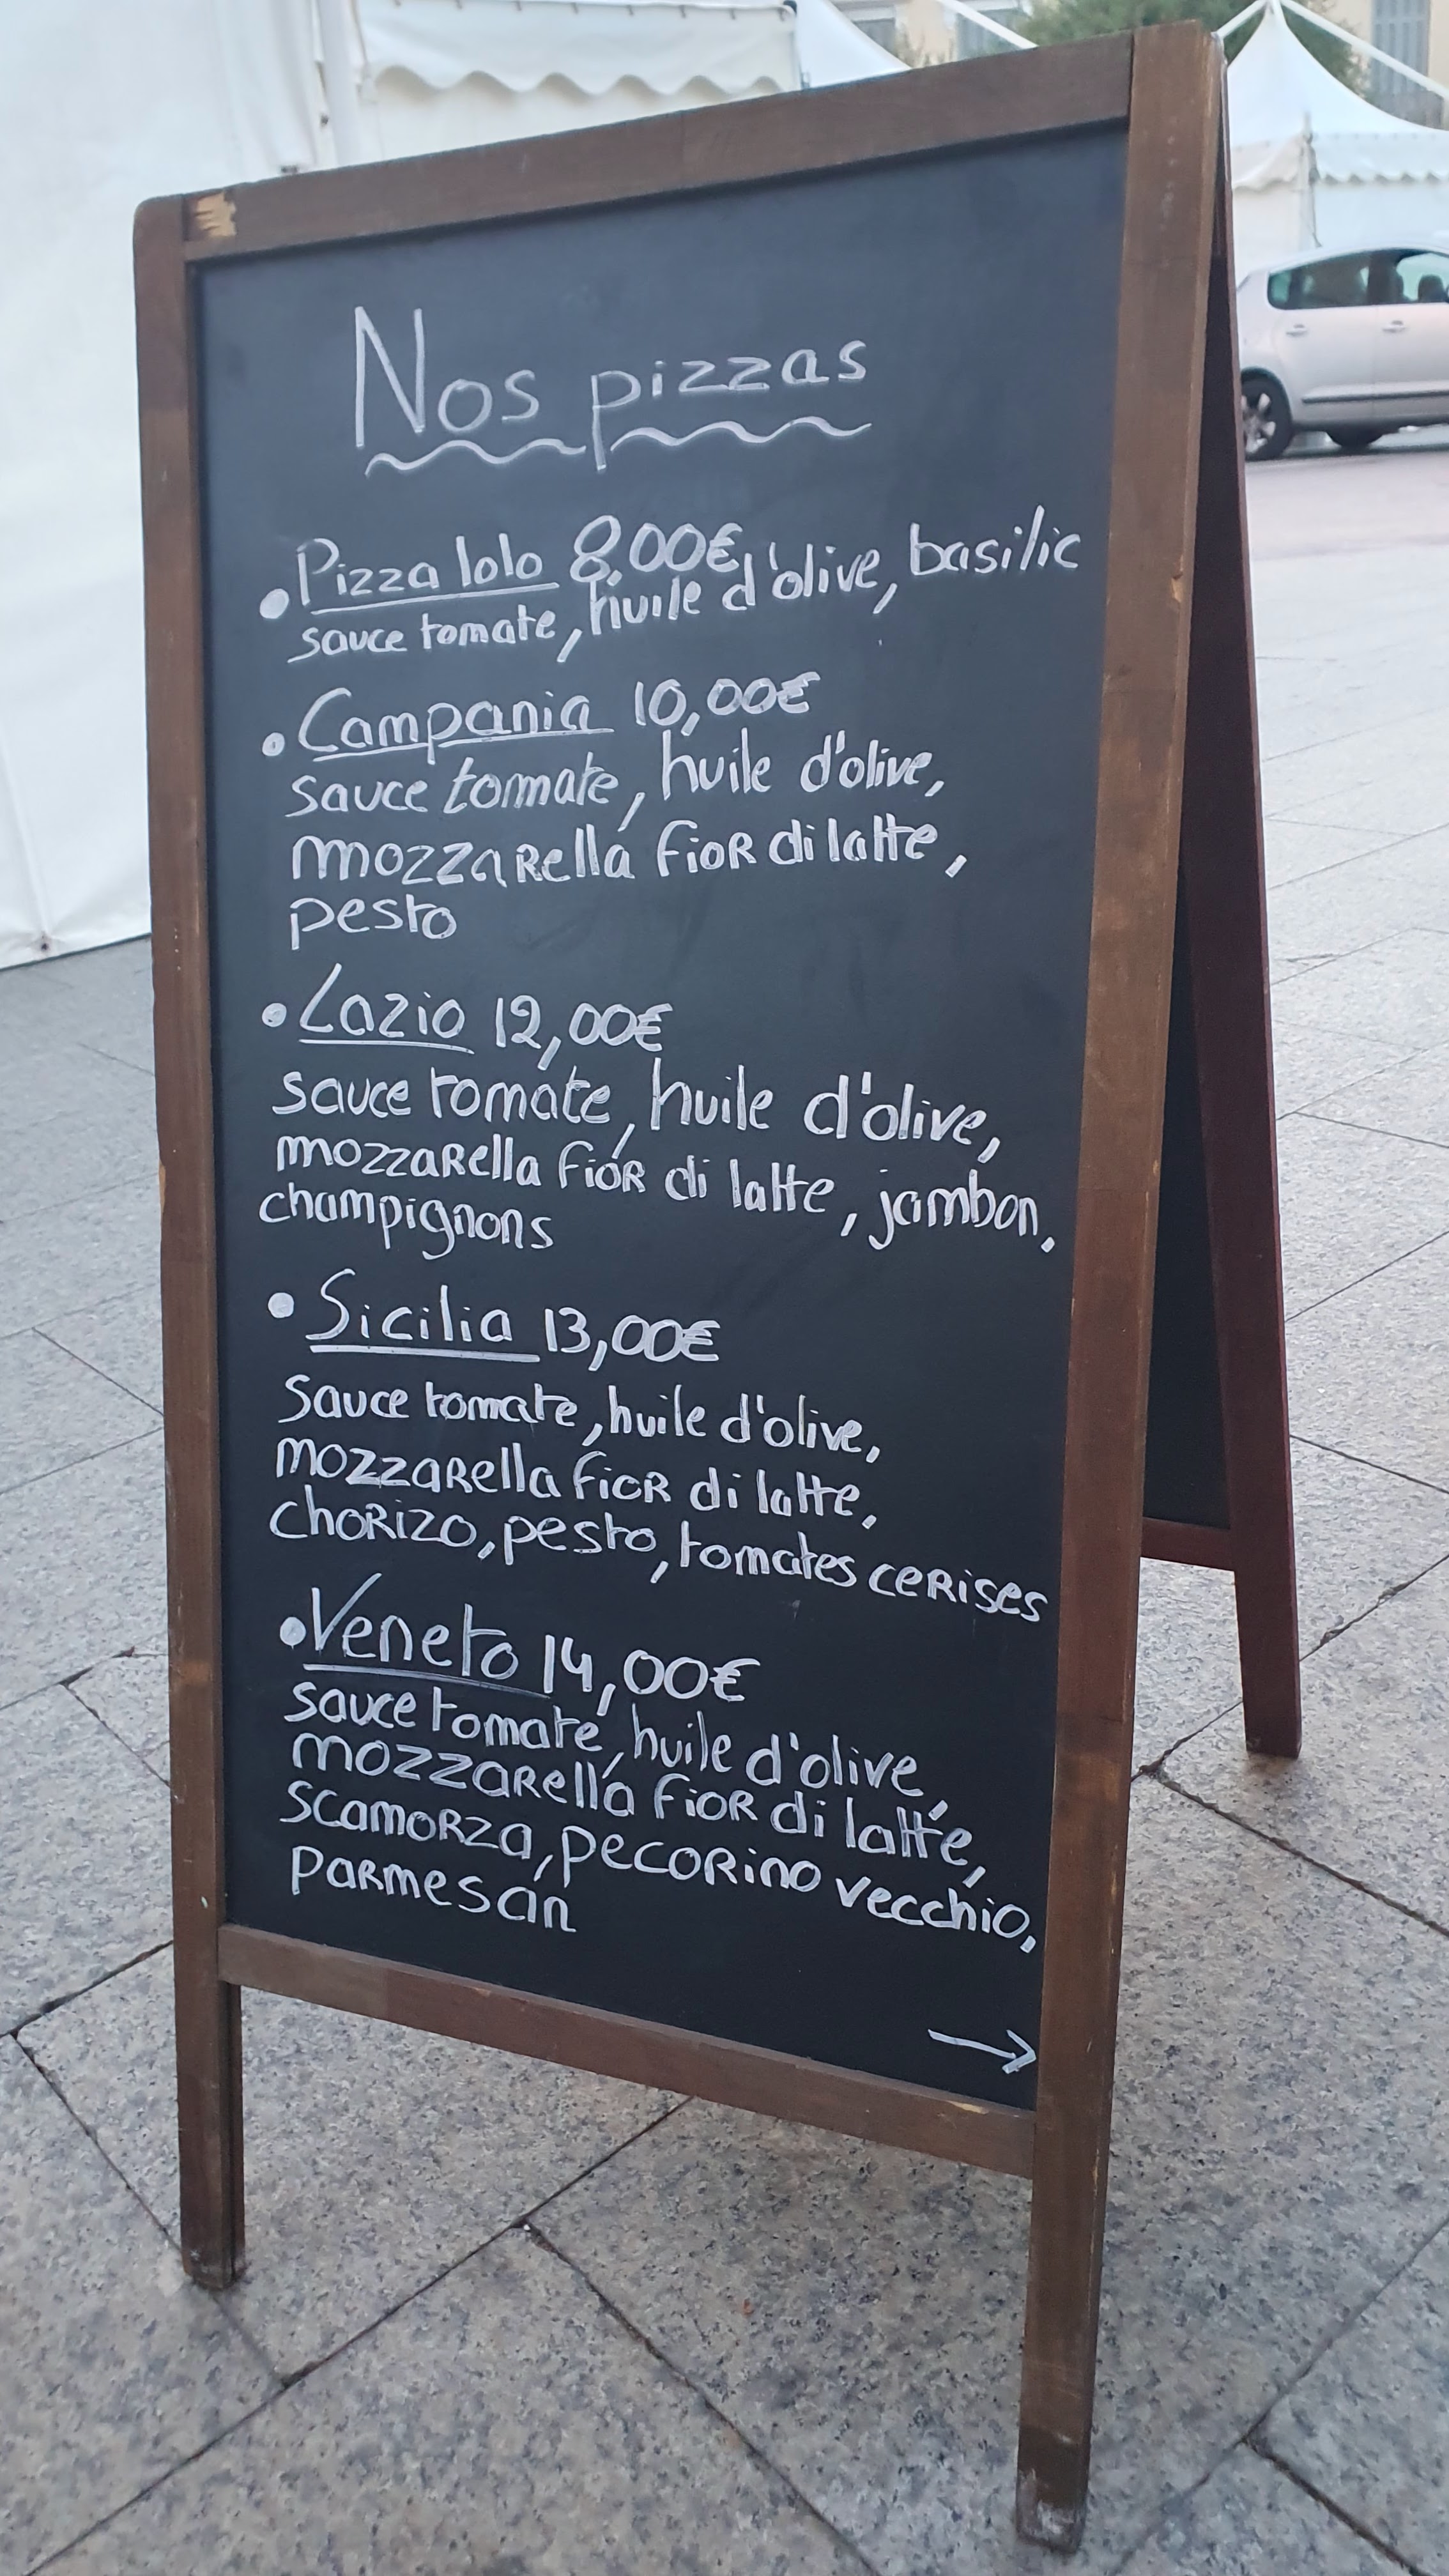 Nos pizzas
• Pizza lolo 8,00€
sauce tomate, huile d'olive, basilic
• Campania 10,00€
sauce tomate, huile d'olive,
mozzarella fior di latte,
pesto
• Lazio 12,00€
sauce tomate, huile d'olive,
mozzarella fior di latte, jambon,
champignons
• Sicilia 13,00€
Sauce tomate, huile d'olive,
mozzarella fior di latte,
chorizo, pesto, tomates cerises
• Veneto 14,00€
sauce tomate, huile d'olive,
mozzarella fior di latte,
scamorza, pecorino vecchio,
parmesan
→